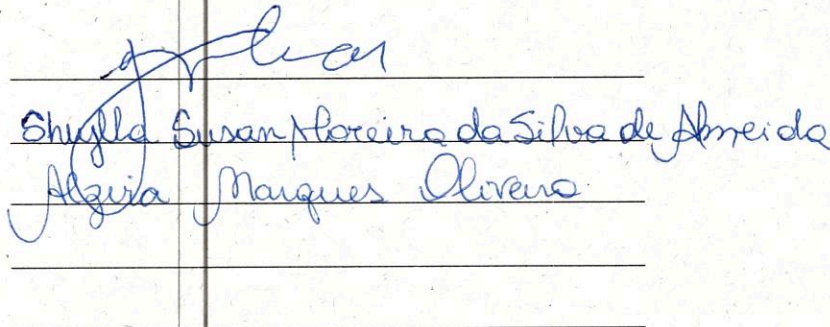 Shuylla Susan Moreira da Silva de Almeida
Alzira Marques Oliveira